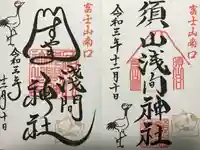 富士山南口
須山浅间神社
令和三年十二月十日
富士山南口
浅間神社
令和三年
十二月十日